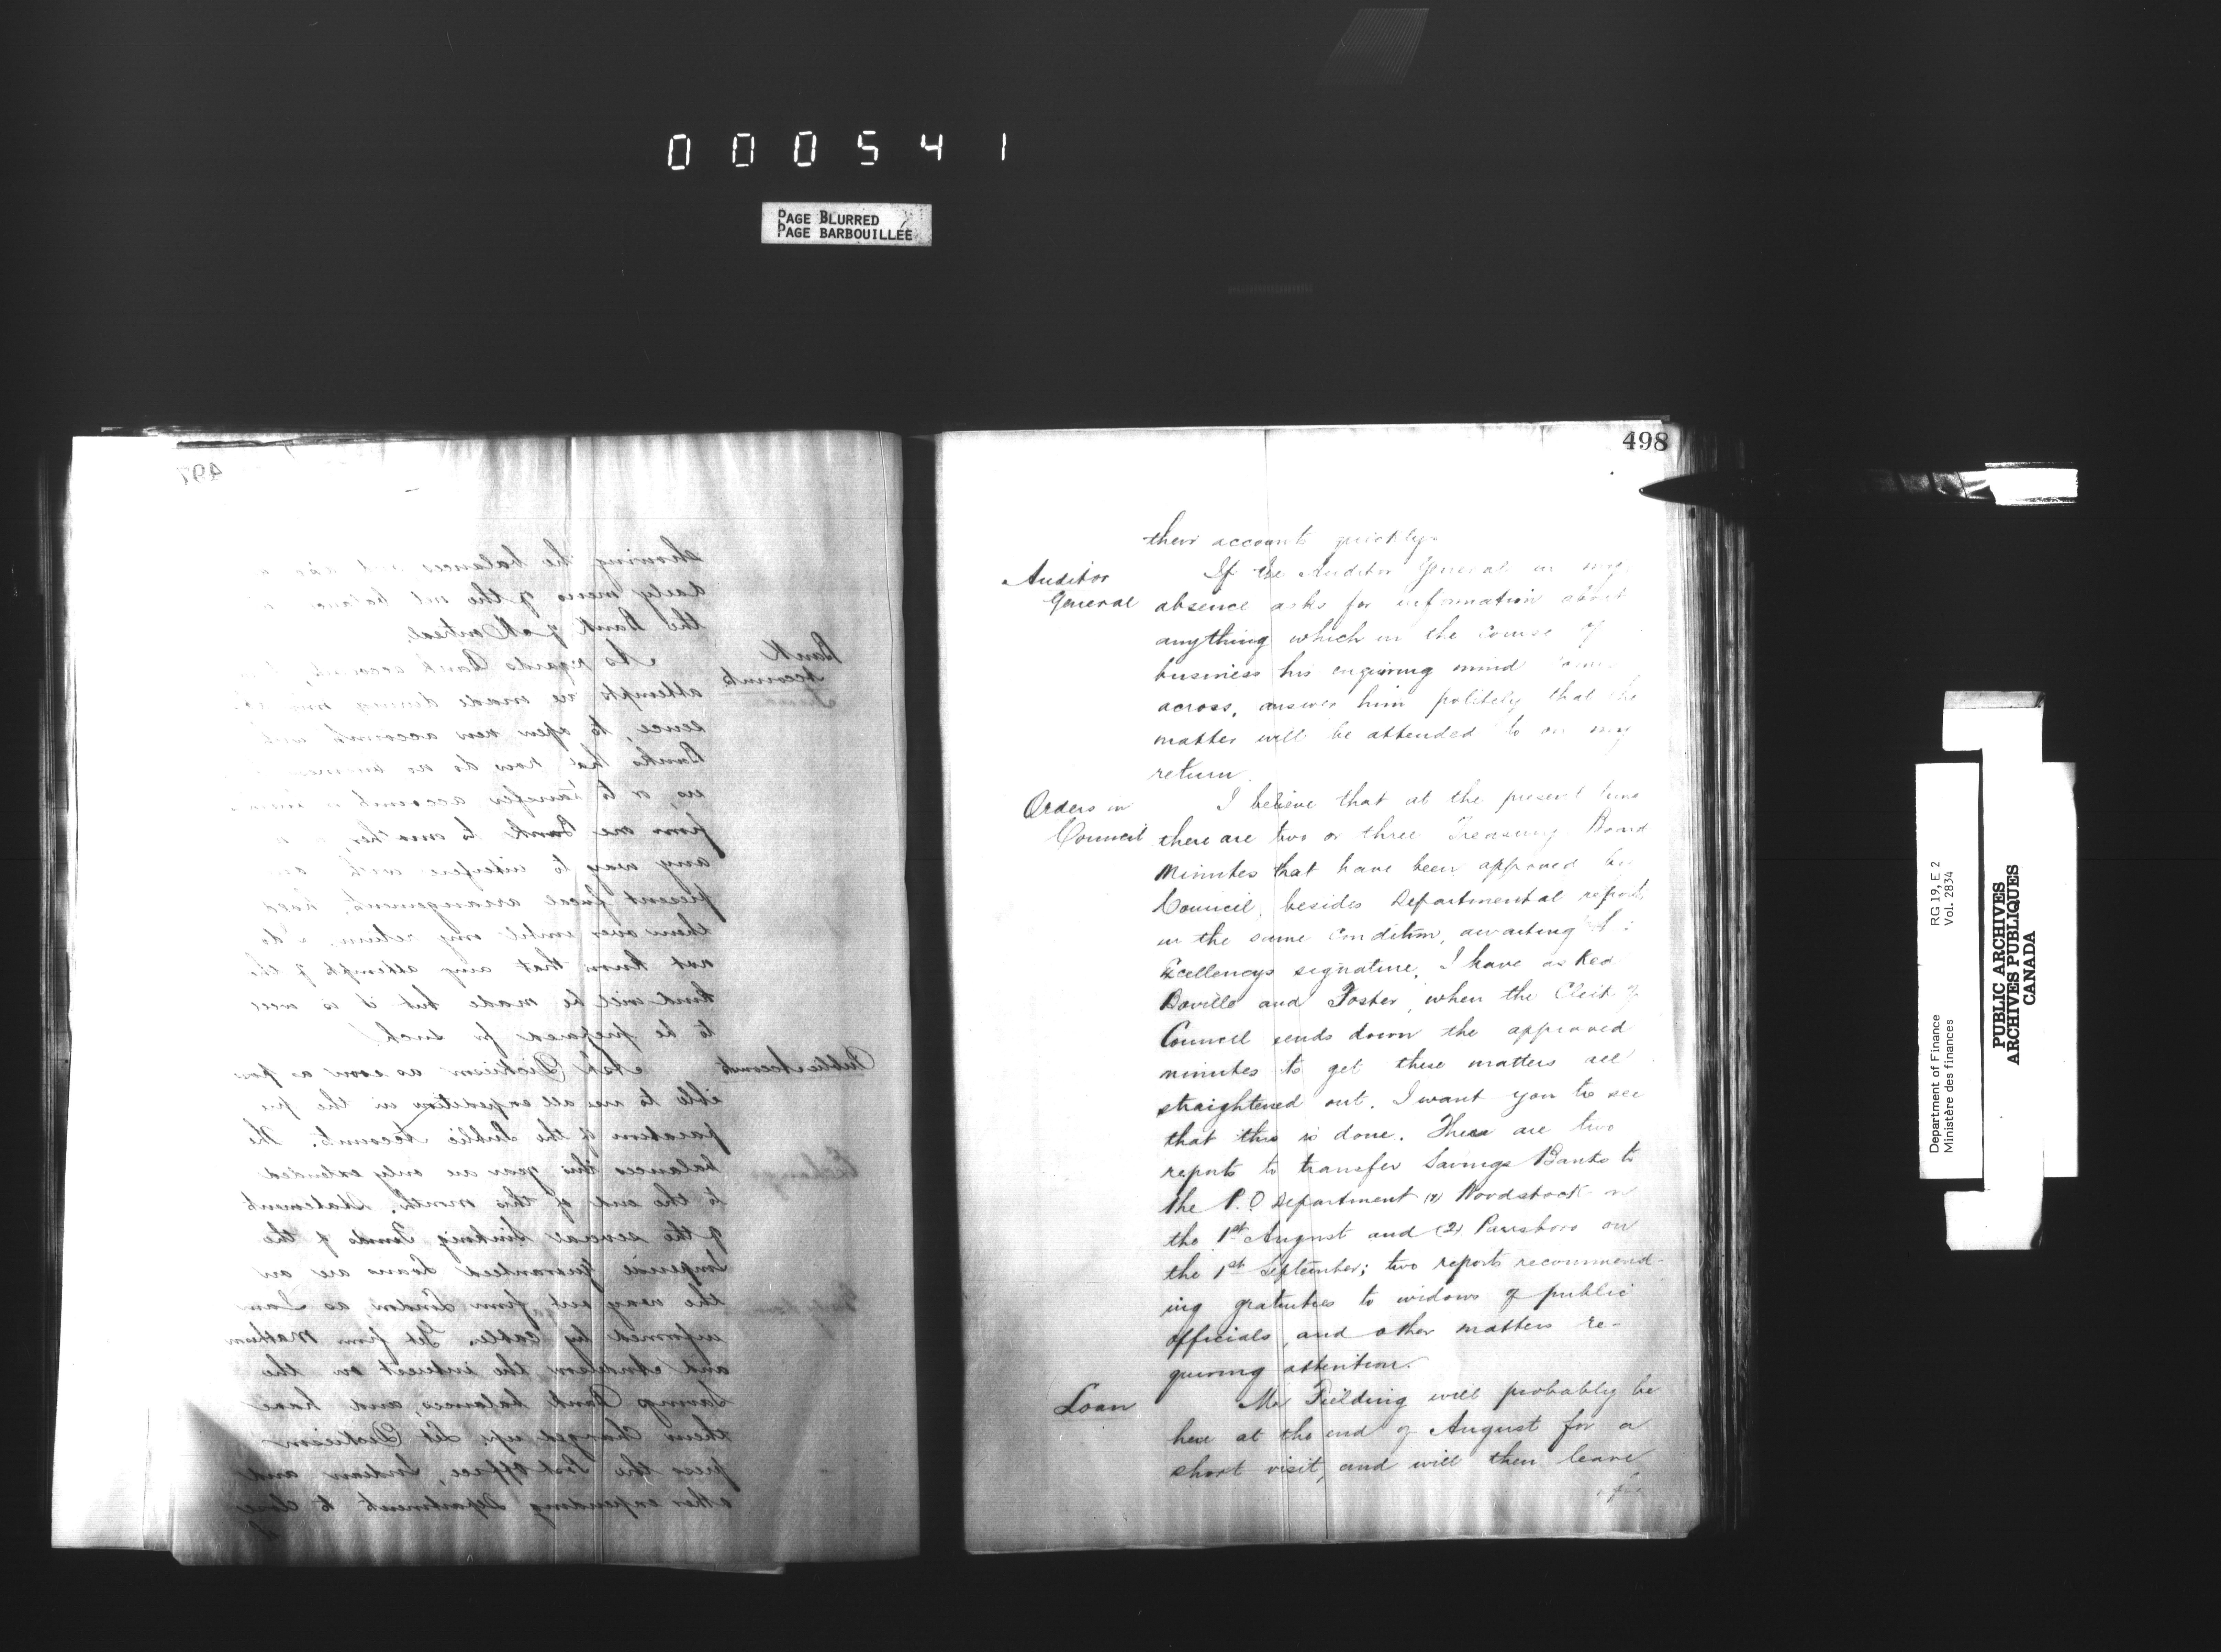 000541
PAGE BLURRED
PAGE BARBOUILLÉE
497
showing the balances and also a
daily memo of the net balance
the Bank of Montreal.
Bank
Accounts
As regards Bank accounts, if
attempts are made during my ab-
sence, to open new accounts with
Banks that now do no business
or to transfer accounts
from one Bank to another, or
any way to interfere with our
present fiscal arrangements, hold
them over until my return. I do
not know that any attempt of the
kind will be made but it is well
to be prepared for such.
Public Accounts
Ask Dickieson as soon as poss
ible to use all expedition in the pre
paration of the Public Accounts. The
balances this year are only extended
to the end of this month. Statements
of the several Sinking Funds of the
Imperial Guaranteed Loans are on
the way out from London as I am
informed by cable. Get from
and Anderson the interest on the
Savings Bank balances, and have
them charged up. Let Dickieson
press the Post Office, Indian and
other expending Department to close
498
their accounts quickly.
Auditor
General
If the Auditor General in my
absence asks for information about
anything which in the course of
business his enquiring mind comes
across, answer him politely that the
matter will be attended to on my
return.
Orders in
Council
I believe that at the present time
there are two or three Treasury Board
Minutes that have been approved by
Council, besides Departmental reports
in the same condition, awaiting His
Excellency's signature. I have asked
Boville and Foster, when the Clerk of
Council sends down the approved
minutes to get these matters all
straightened out. I want you to see
that this is done. There are two
reports to transfer Savings Banks to
the P.O Department (1) Woodstock on
the 1st August and (2) Parrsboro on
the 1st September; two reports recommend-
ing gratuities to widows of public
officials, and other matters re-
quiring attention.
Loan
Mr Fielding will probably be
here at the end of August for a
short visit, and will then leave
for
Department of Finance
Ministère des finances
RG 19, E 2
Vol. 2834
PUBLIC ARCHIVES
ARCHIVES PUBLIQUES
CANADA